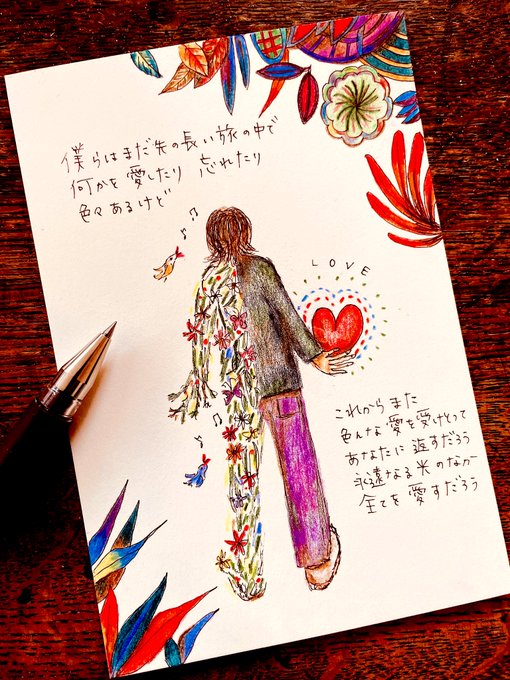 僕らはまだ先の長い旅の中で
何かを愛したり 忘れたり
色々あるけど
LOVE
これからまた
色んな愛を受けとって
あなたに返すだろう
永遠なる光のなか
全てを愛すだろう